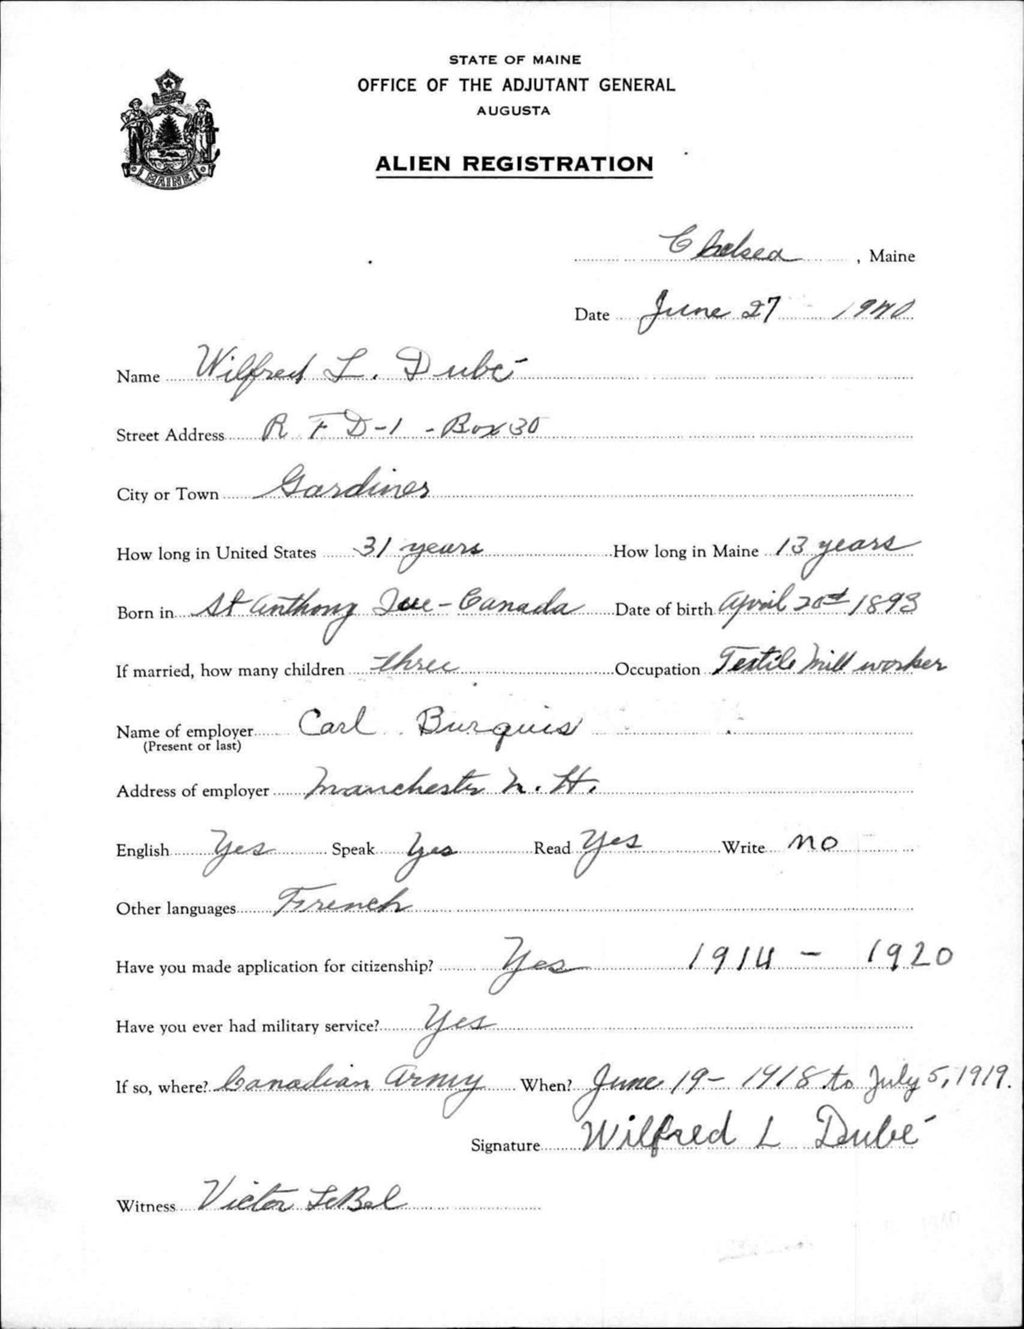 STATE OF MAINE
OFFICE OF THE ADJUTANT GENERAL
AUGUSTA
ALIEN REGISTRATION
MAINE
Chelsea, Maine
Date June 27 1940
Name Wilfred L. Dubé
Street Address R F D-1 - Box 30
City or Town Gardiner
How long in United States 31 years How long in Maine 13 years
Born in St Anthony Que - Canada Date of birth April 20 1893
If married, how many children three Occupation Textile Mill worker
Name of employer Carl Burquis
(Present or last)
Address of employer Manchester N. H.
English Yes Speak Yes Read Yes Write no
Other languages French
Have you made application for citizenship? Yes 1914 - 1920
Have you ever had military service? Yes
If so, where? Canadian Army When? June 19 - 1918 to July 5, 1919.
Signature Wilfred L Dubé
Witness Victor LeBel